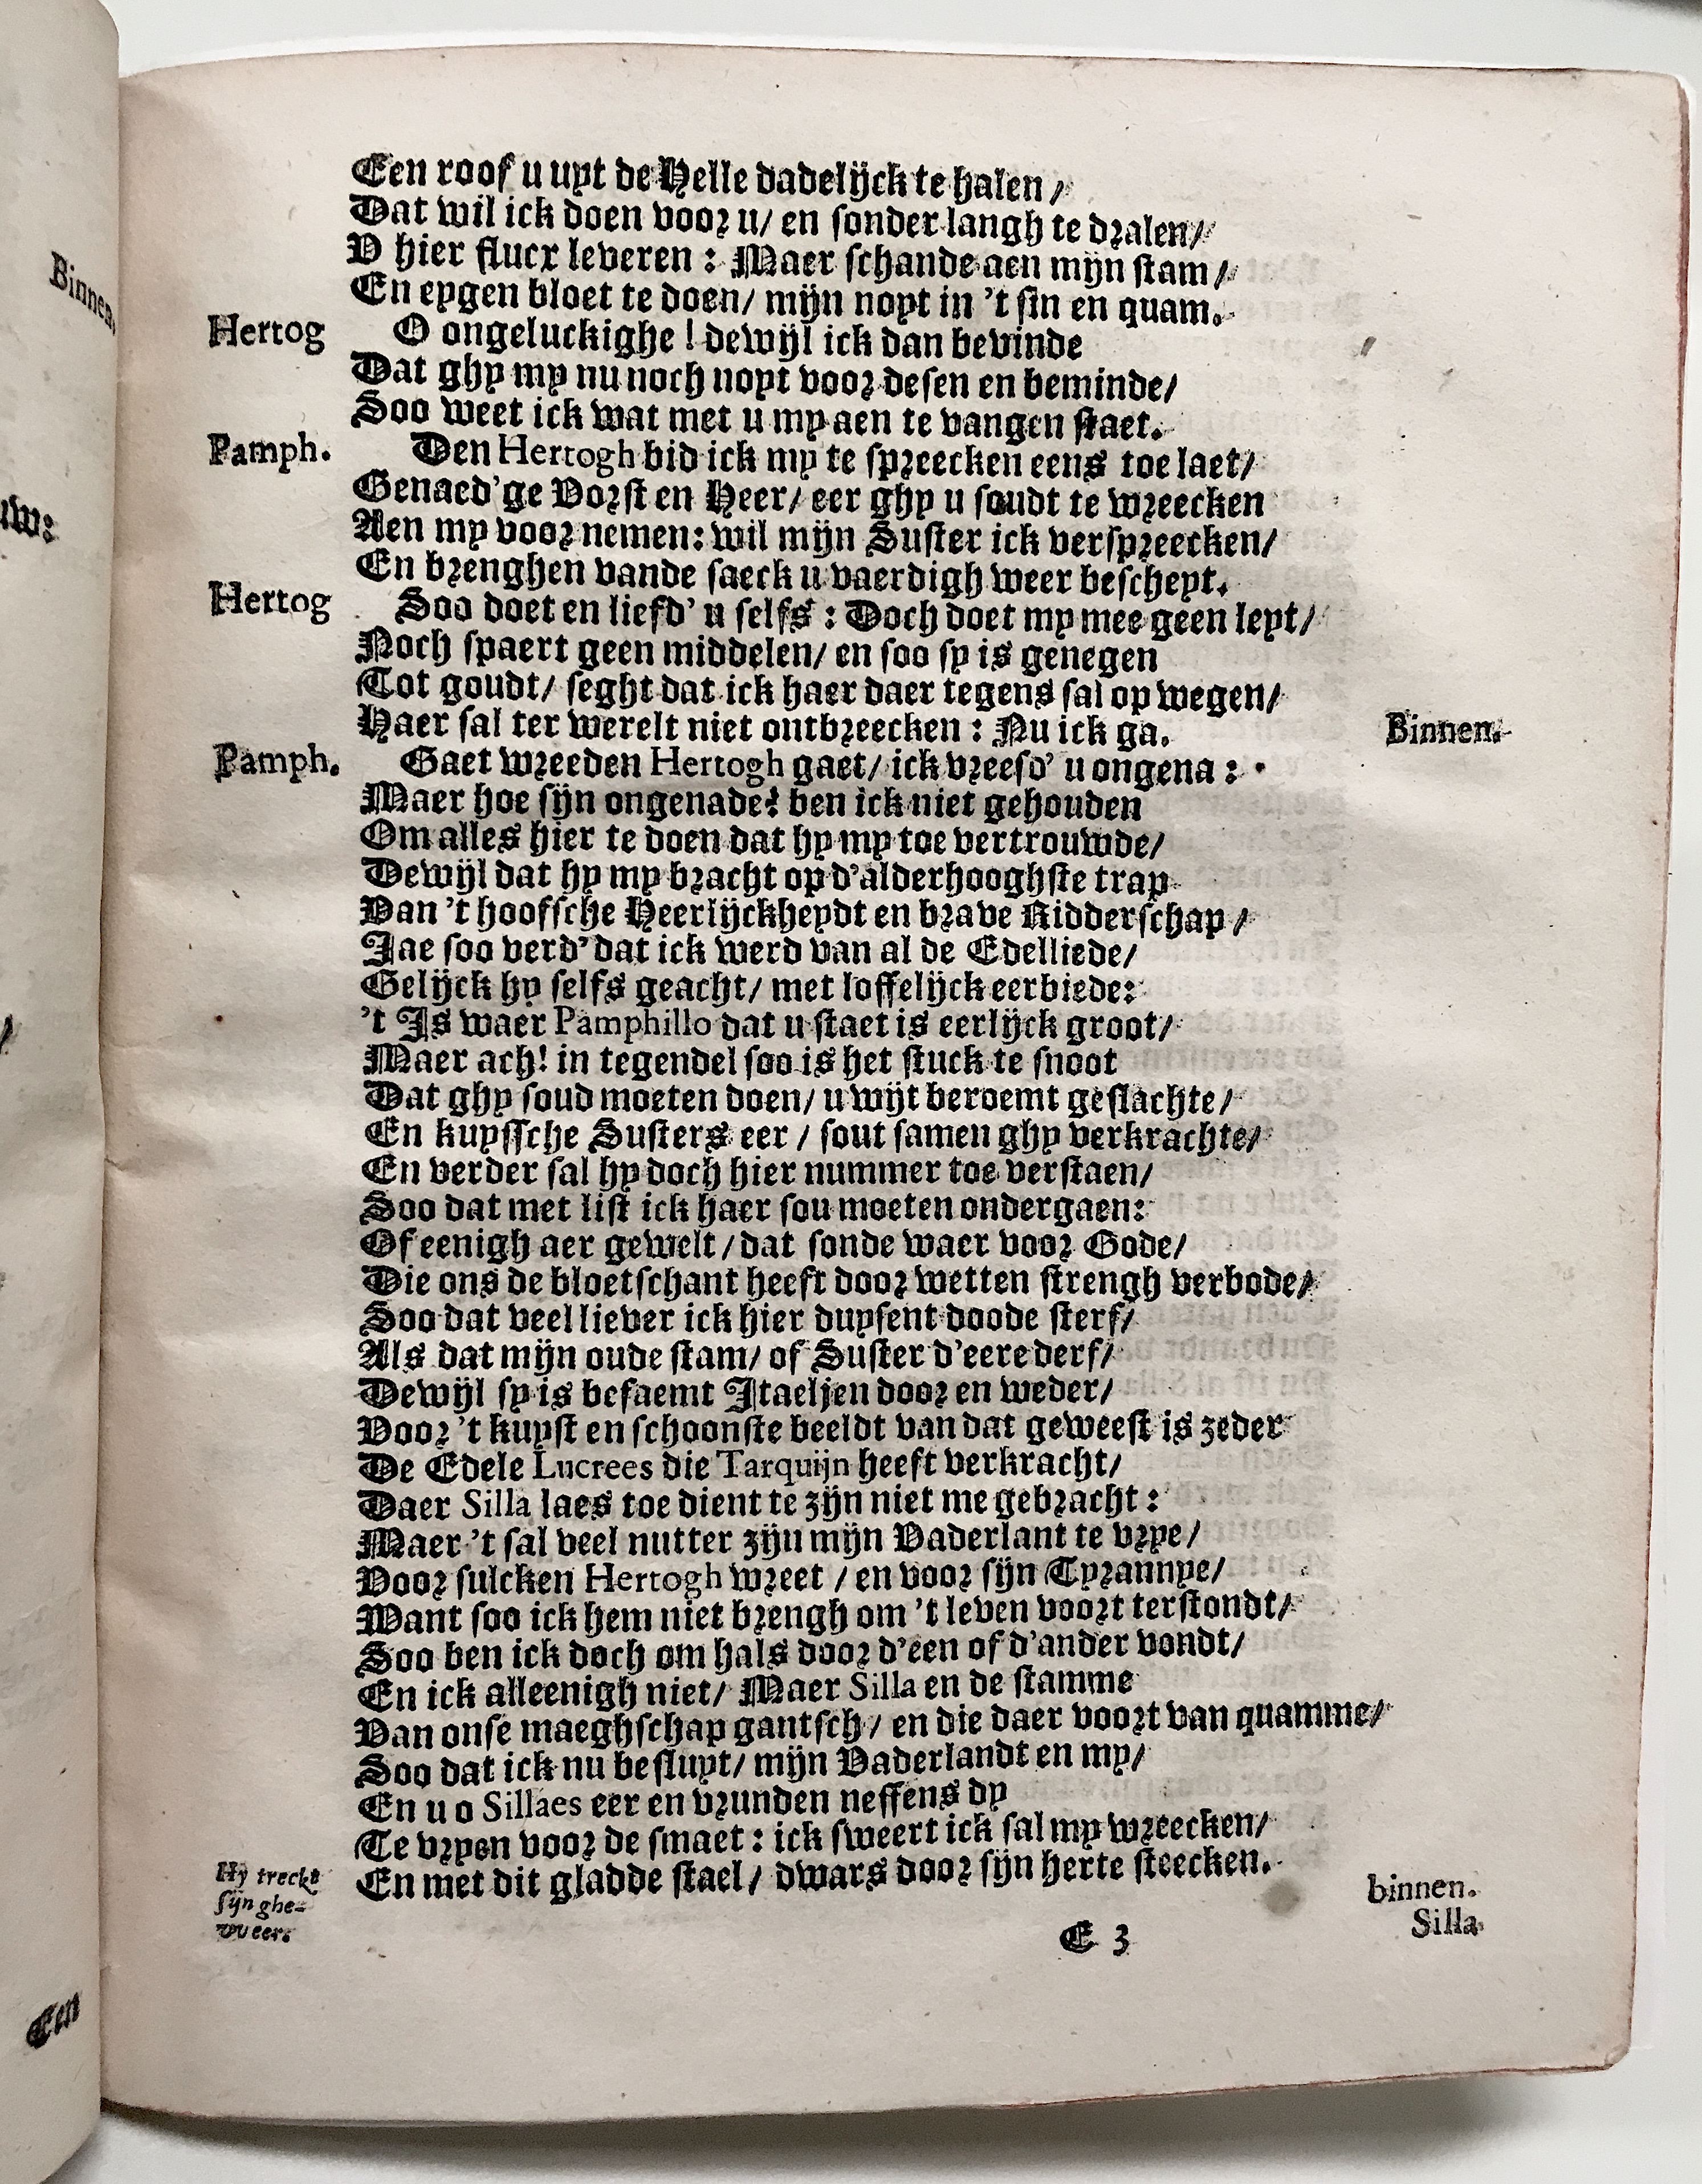 Binnen.
uw:
/
Een
Een roof u uyt de Helle dadelijck te halen /
Dat wil ick doen voor u/ en sonder langh te dralen/
V hier flucx leveren : Maer schande aen mijn stam /
En eygen bloet te doen/ mijn noyt in 't sin en quam.
Hertog O ongeluckighe ! dewijl ick dan bevinde
Dat ghy my nu noch noyt voor desen en beminde/
Soo weet ick wat met u my aen te vangen staet.
Pamph. Den Hertogh bid ick my te spreecken eens toe laet/
Genaed'ge Vorst en Heer/ eer ghy u soudt te wreecken
Aen my voor nemen: wil mijn Suster ick verspreecken/
En brenghen vande saeck u vaerdigh weer bescheyt.
Hertog Soo doet en liefd' u selfs : Doch doet my mee geen leyt/
Noch spaert geen middelen/ en soo sy is genegen
Tot goudt/ seght dat ick haer daer tegens sal op wegen/
Haer sal ter werelt niet ontbreecken : Nu ick ga. Binnen.
Pamph. Gaet wreeden Hertogh gaet/ ick vreesd' u ongena :
Maer hoe sijn ongenade? ben ick niet gehouden
Om alles hier te doen dat hy my toe vertrouwde/
Dewijl dat hy my bracht op d'alderhooghste trap
Van 't hoofsche Heerlijckheydt en brave Ridderschap /
Jae soo verd' dat ick werd van al de Edelliede/
Gelijck hy selfs geacht/ met loffelijck eerbiede:
't Is waer Pamphillo dat u staet is eerlijck groot/
Maer ach! in tegendel soo is het stuck te snoot
Dat ghy soud moeten doen/ u wijt beroemt geslachte/
En kuyssche Susters eer / sout samen ghy verkrachte/
En verder sal hy doch hier nummer toe verstaen/
Soo dat met list ick haer sou moeten ondergaen:
Of eenigh aer gewelt / dat sonde waer voor Gode/
Die ons de bloetschant heeft door wetten strengh verbode/
Soo dat veel liever ick hier duysent doode sterf/
Als dat mijn oude stam/ of Suster d'eere derf/
Dewijl sy is befaemt Itaeljen door en weder/
Voor 't kuyst en schoonste beeldt van dat geweest is zeder
De Edele Lucrees die Tarquijn heeft verkracht/
Daer Silla laes toe dient te zijn niet me gebracht :
Maer 't sal veel nutter zijn mijn Vaderlant te vrye/
Voor sulcken Hertogh wreet / en voor sijn Tyrannye/
Want soo ick hem niet brengh om 't leven voort terstondt/
Soo ben ick doch om hals door d'een of d'ander vondt/
En ick alleenigh niet/ Maer Silla en de stamme
Van onse maeghschap gantsch / en die daer voort van quamme/
Soo dat ick nu besluyt/ mijn Vaderlandt en my/
En u o Sillaes eer en vrunden neffens dy
Te vryen voor de smaet : ick sweert ick sal my wreecken/
En met dit gladde stael / dwars door sijn herte steecken.
Hy treckt
sijn ghe-
weer.
binnen.
E 3
Silla